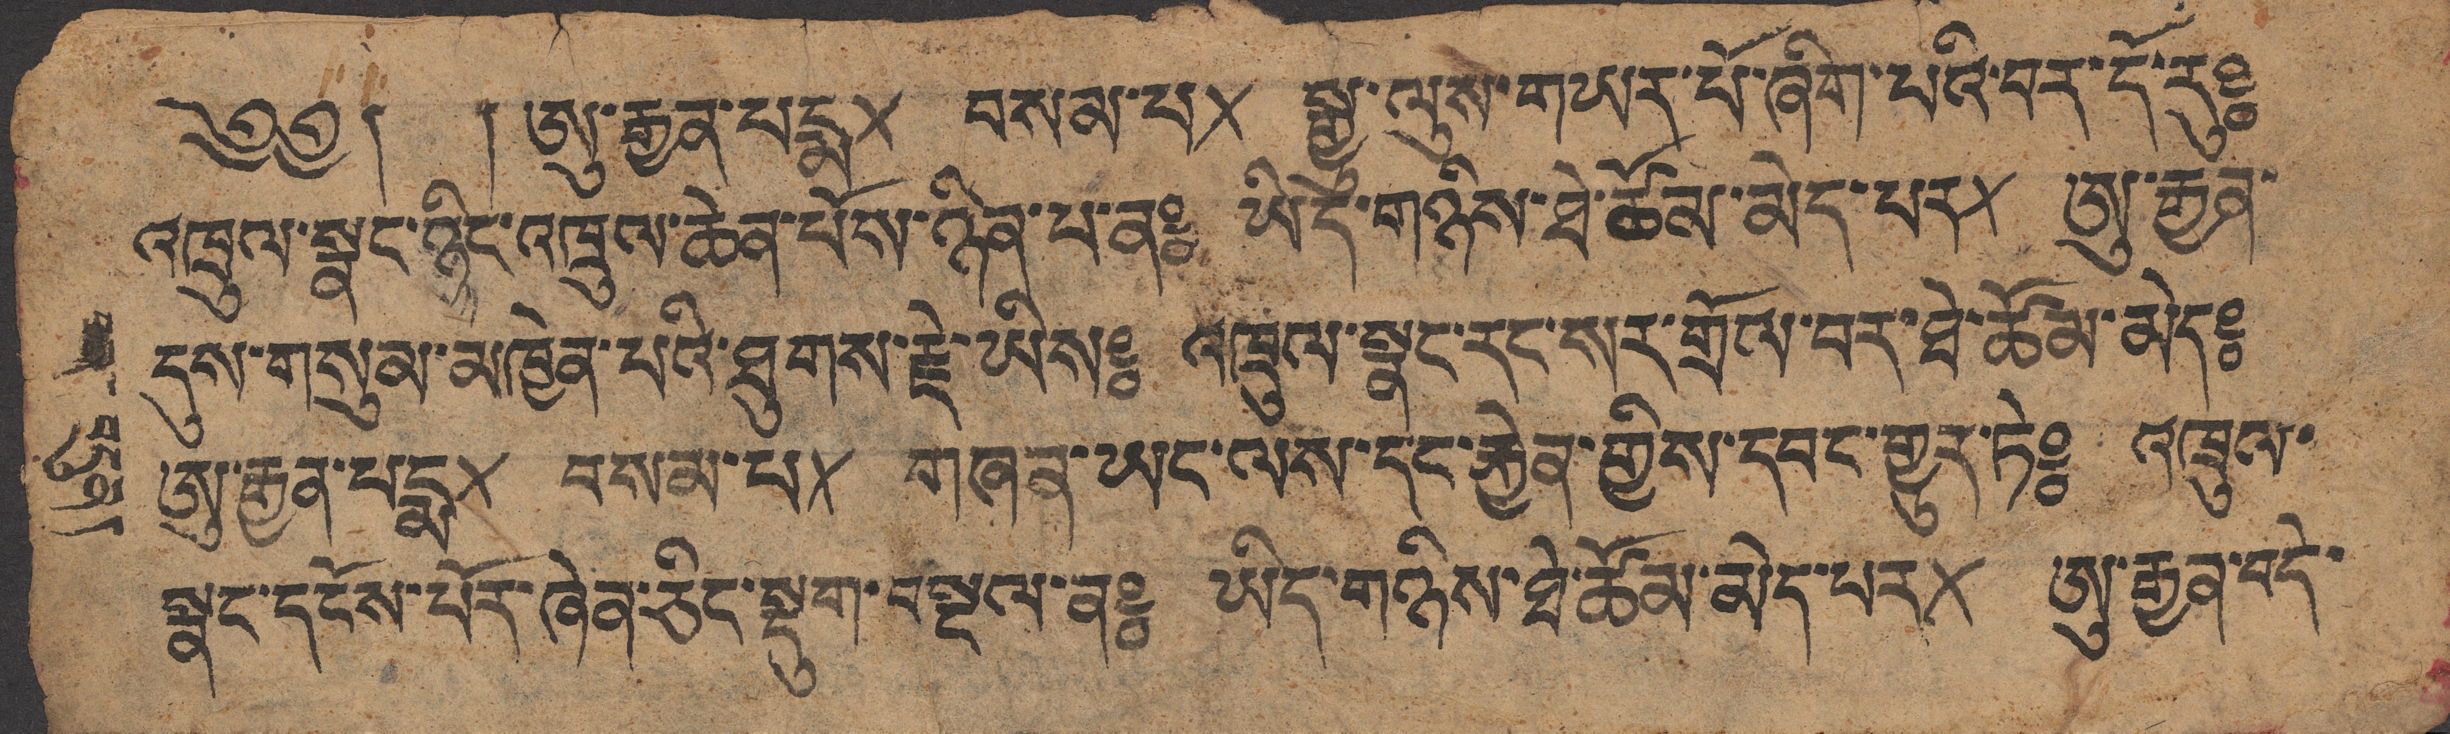 ༄༅། །ཨུ་རྒྱན་པདྨ× བསམ་པ× སྒྱུ་ལུས་གཡར་པོ་ཞིག་པའི་བར་དོ་རུ༔
འཁྲུལ་སྣང་ཉིང་འཁྲུལ་ཆེན་པོས་ཉེན་པ་ན༔ ཡིད་གཉིས་ཐེ་ཚོམ་མེད་པར× ཨུ་རྒྱན་
དུས་གསུམ་མཁྱེན་པའི་ཐུགས་རྗེ་ཡིས༔ འཁྲུལ་སྣང་རང་སར་གྲོལ་བར་ཐེ་ཚོམ་མེད༔
ཨུ་རྒྱན་པདྨ× བསམ་པ× གཞན་ཡང་ལས་དང་རྐྱེན་གྱིས་དབང་གྱུར་ཏེ༔ འཁྲུལ་
སྣང་དངོས་པོར་ཞེན་ཅིང་སྡུག་བསྔལ་ན༔ ཡིད་གཉིས་ཐེ་ཚོམ་མེད་པར× ཨུ་རྒྱན་བདེ་